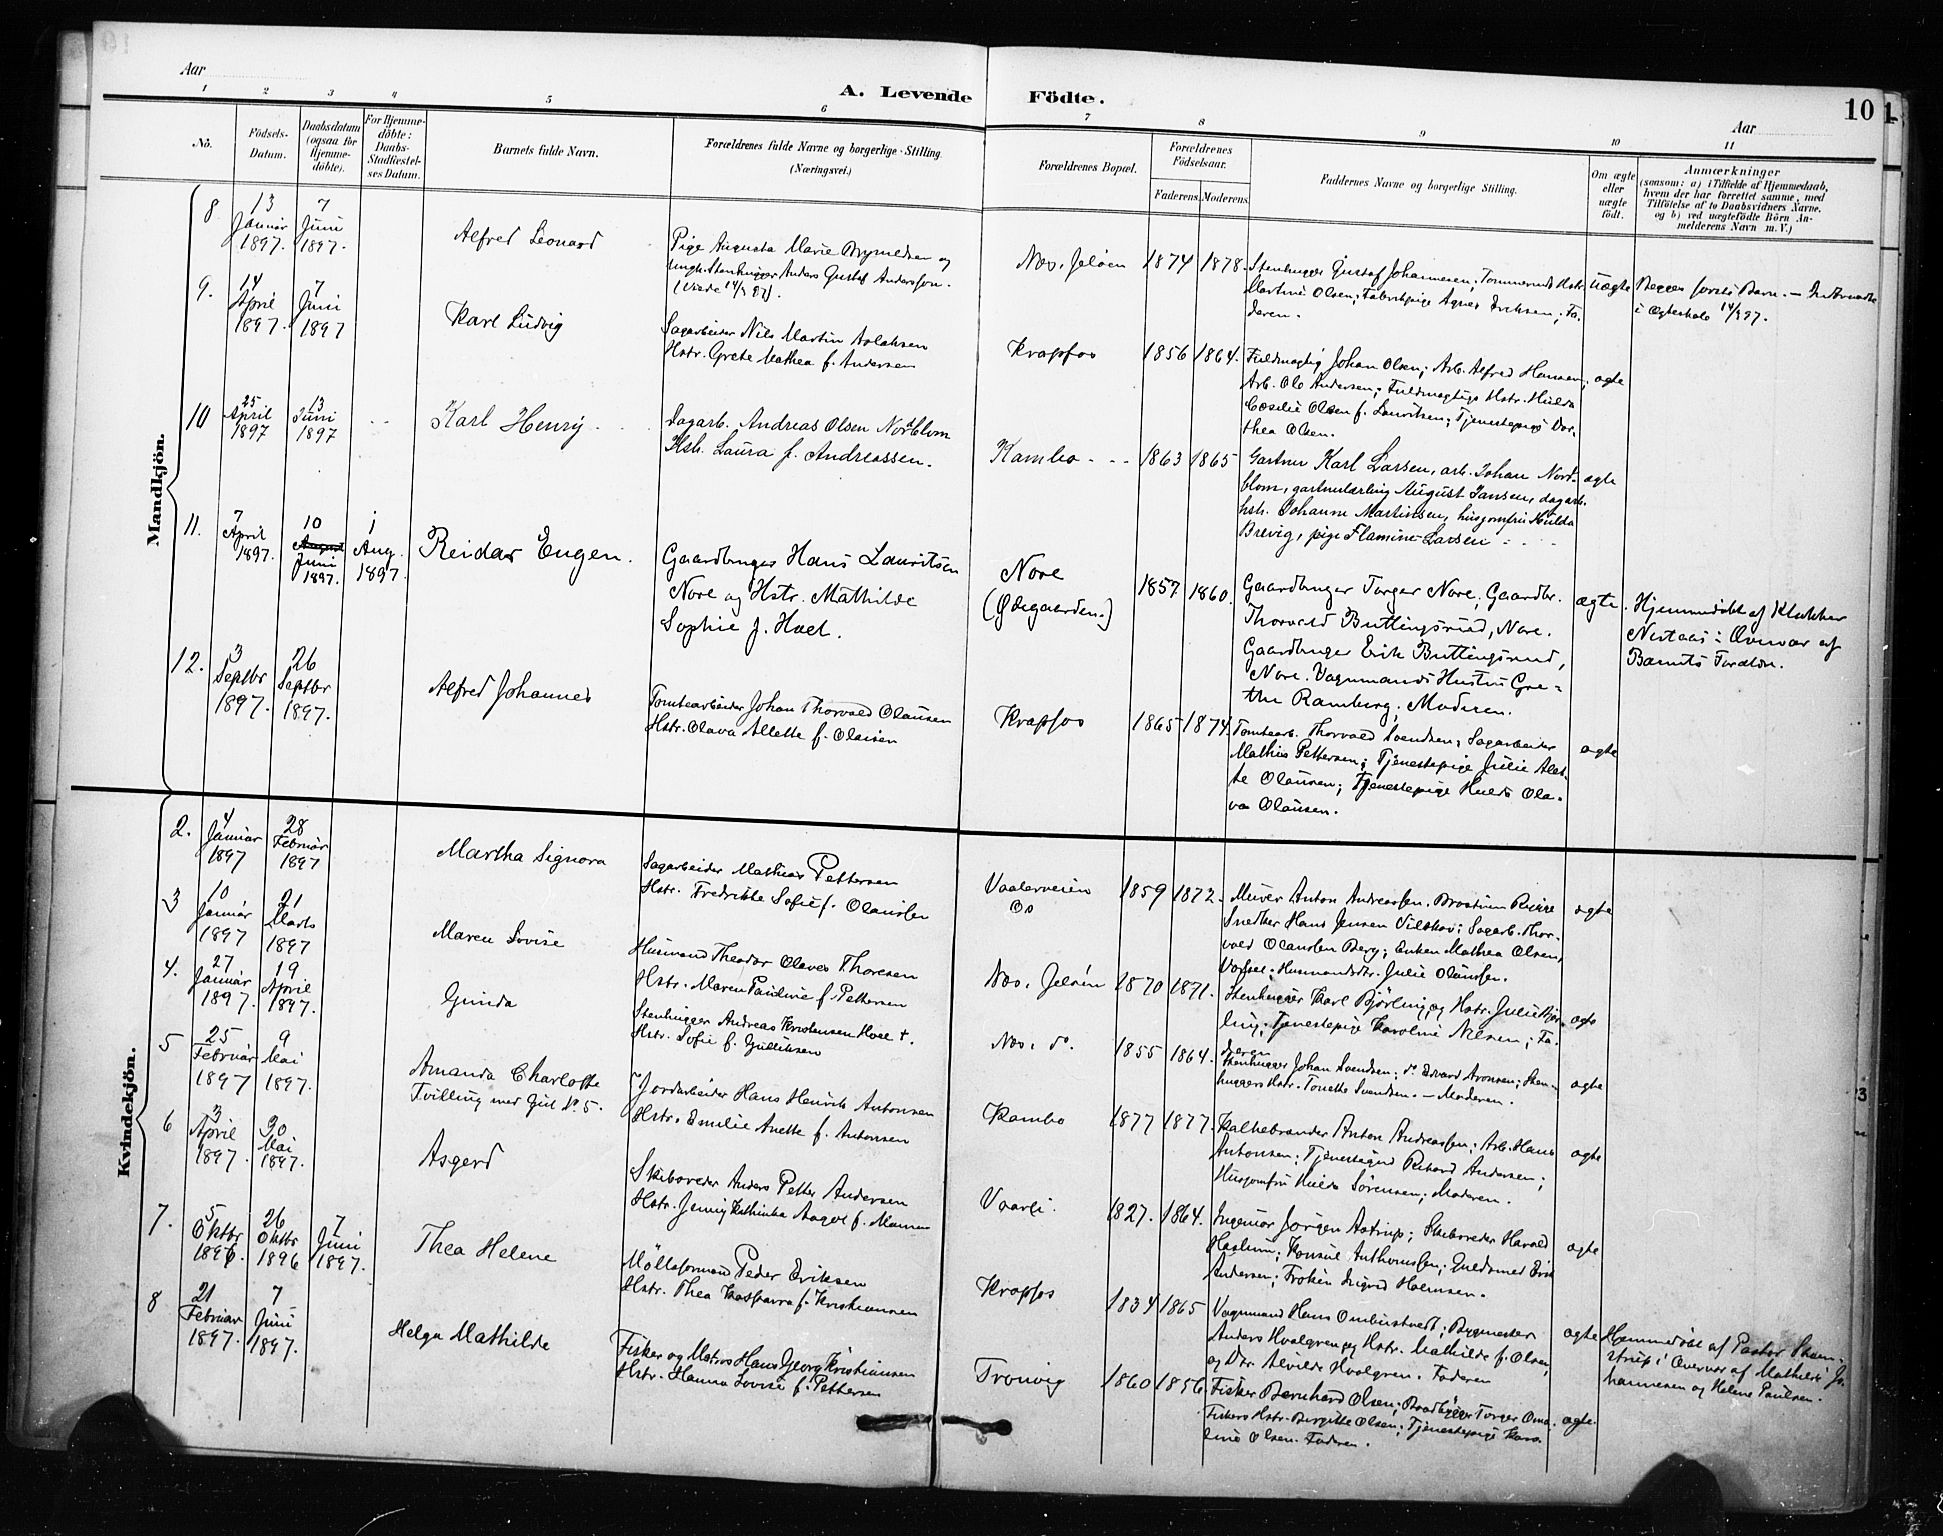 Aar
A. Levende Födte.
10
Aar
1 2 3 4 5 6 7 8 9 10 11
No.
Födsels-
Datum.
Daabsdatum
(ogsaa for
Hjemme-
döbte).
For Hjemme-
döbte:
Daabs-
Stadfæstel-
ses Datum.
Barnets fulde Navn.
Forældrenes fulde Navne og borgerlige Stilling.
(Næringsvei.)
Forældrenes Bopæl.
Forældrenes
Födselsaar.
Faderens. Moderens.
Faddernes Navne og borgerlige Stilling.
Om ægte
eller
uægte
födt.
Anmærkninger
(saasom: a) i Tilfælde af Hjemmedaab,
hvem der har forrettet samme, med
Tilföielse af to Daabsvidners Navne,
og b) ved uægtefödte Börn An-
melderens Navn m. V.)
Mandkjön.
8 13 Januar 1897. 7 Juni 1897.
Alfred Leonard
Pige Augusta Marie Brynildsen og
Ungk. Stenhugger Anders Gustaf Andersson.
(Viede 14/8 97).
Næs, Jelöen 1874 1878.
Stenhugger Gustaf Johannesen; Tømmermds Hstr.
Martine Olsen; Fabrikpige Agnes Eriksen; Fa-
deren.
Uægte
Begges første Barn. – Indtraadte
i Ægteskab 14/8 97.
9. 14 April 1897. 7 Juni 1897
Karl Ludvig
Sagarbeider Nils Martin Aslaksen
Hstr. Grete Mathea f. Andersen
Krapfos 1856 1864.
Fuldmægtig Johan Olsen; Arb. Alfred Hansen;
Arb. Ole Andersen; Fuldmægtigs Hstr. Hulda
Cæselie Olsen f. Lauritsen; Tjenestepige Dor-
thea Olsen.
ægte
10 25 April 1897 13 Juni 1897
Karl Henry
Dagarb. Andreas Olsen Nordblom
Hstr. Laura f. Andreassen.
Kambo 1863 1865
Gartner Karl Larsen, arb. Johan Nord-
blom, gartnerlærling August Jansen, dagarb.
hstr. Johanne Martinsen, husjomfru Hulda
Brevig, pige Flamine Larsen
ægte
11. 7 April 1897. 10 August Juni 1897. 1 Aug. 1897.
Reidar Eugen.
Gaardbruger Hans Lauritsen
Nore og Hstr. Mathilde
Sophie f. Hoel.
Nore
(Ødegaarden.)
1857 1860.
Gaardbruger Torger Nore, Gaardbr.
Thorvald Buttingsrud, Nore.
Gaardbruger Erik Buttingsrud,
Nore. Vognmands Hustru Gre-
the Ramberg, Moderen.
ægte.
Hjemmedøbt af Klokker
Nestaas i Overvær af
Barnets Forældre.
12. 3 Septbr 1897. 26 Septbr 1897.
Alfred Johannes
Tomtearbeider Johan Thorvald Olausen
Hstr. Olava Alette f. Olausen
Krapfos 1865 1874.
Tomtearb. Thorvald Svendsen; Sagarbeider
Mathias Pettersen; Tjenestepige Julie Alet-
te Olausen; Tjenestepige Hulda Ola-
va Olausen.
ægte
Kvindekjön.
2. 4 Januar 1897 28 Februar 1897
Martha Signora
Sagarbeider Mathias Pettersen
Hstr. Fredrikke Sofie f. Olaussen
Vaalerveien
1859 1872.
Murer Anton Andreassen,
Snedker Hans Jensen Vilskov; Sagarb. Thor-
vald Olaussen Berg; Enken Mathea Olsen,
Husmandsdtr. Julie Olaussen.
ægte
3 10 Januar 1897 21 Marts 1897
Maren Lovise
Husmand Theodor Olaves Thoresen
Hstr. Maren Pauline f. Pettersen
Næs, Jelöen 1870 1871.
Stenhugger Karl Björling og Hstr. Julie Bjør-
ling; Tjenestepige Karoline Nilsen; Fa-
deren
ægte
4. 27 Januar 1897. 19 April 1897.
Gunda
Stenhugger Andreas Kristensen Hoel +.
Hstr. Sofie f. Gulliksen
Næs, do. 1855 1864.
Stenhugger Johan Svendsen; do Edvard Aronsen; Sten-
huggers Hstr. Tonette Svendsen. – Moderen.
ægte
5 25 Februar 1897 9 Mai 1897.
Amanda Charlotte
Tvilling med Gut No. 5.
Jordarbeider Hans Henrik Antonsen
Hstr. Emilie Anette f. Antonsen
Kambo 1877 1877.
Kalkebrænder Anton Andreassen; Arb. Hans
Antonsen; Tjenestegut Rikard Andersen;
Husjomfru Hulda Sørensen; Moderen.
ægte
6 3 April 1897. 30 Mai 1897.
Asgerd
Skibsreder Anders Petter Andersen
Hstr. Jenny Kathinka Aagot f.
Vaarli. 1827. 1864.
Ingeniør Jørgen Astrup; Skibsreder Harald
Konsul Anthonissen; Guldsmed Erik
Andersen; Frøken Ingrid Holmsen.
ægte
7. 5 Oktbr 1896. 26 Oktbr 1896 7 Juni 1897.
Thea Helene
Møllaformand Peder Eriksen
Hstr. Thea Kasparra f. Kristiansen
Krapfos 1834 1865
Vognmand Hans Ombustvedt; Bygmester
Anders Hvalgren og Hstr. Mathilde f. Olsen,
og Dtr. Alvilde Hvalgren. Faderen
ægte
Hjemmedøbt af Pastor
i Overvær af Mathilde Jo-
hannesen og Helene Paulsen.
8 21 Februar 1897. 7 Juni 1897.
Helga Mathilde
Fisker og Matros Hans Georg Kristiansen
Hstr. Hanna Lovise f. Pettersen
Tronvig 1860 1856
Fisker Bernhard Olsen; Baadbygger Torger
Fiskers Hstr. Birgitte Olsen; Tjenestepige Karo-
line Olsen. Faderen.
ægte.